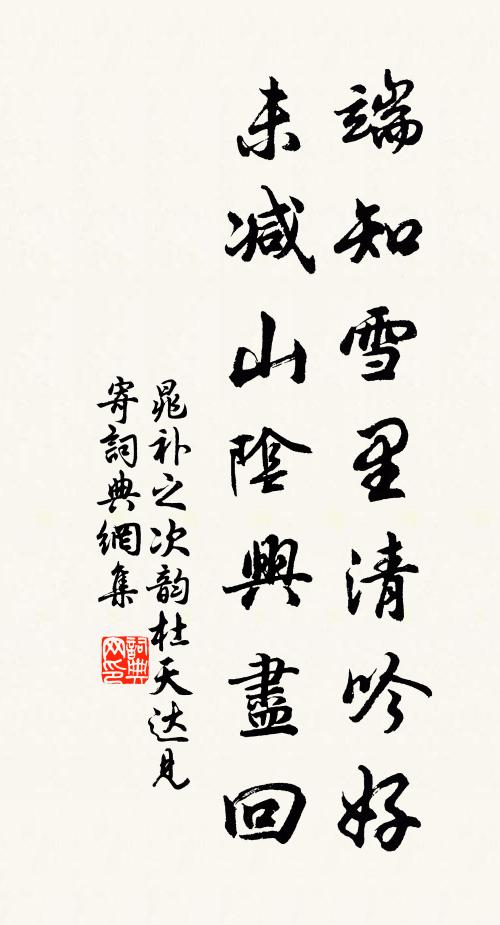 端知雪里清吟好
未减山陰興盡回
晁补之次韵杜天达見
寄詞典網集
詞典
网印